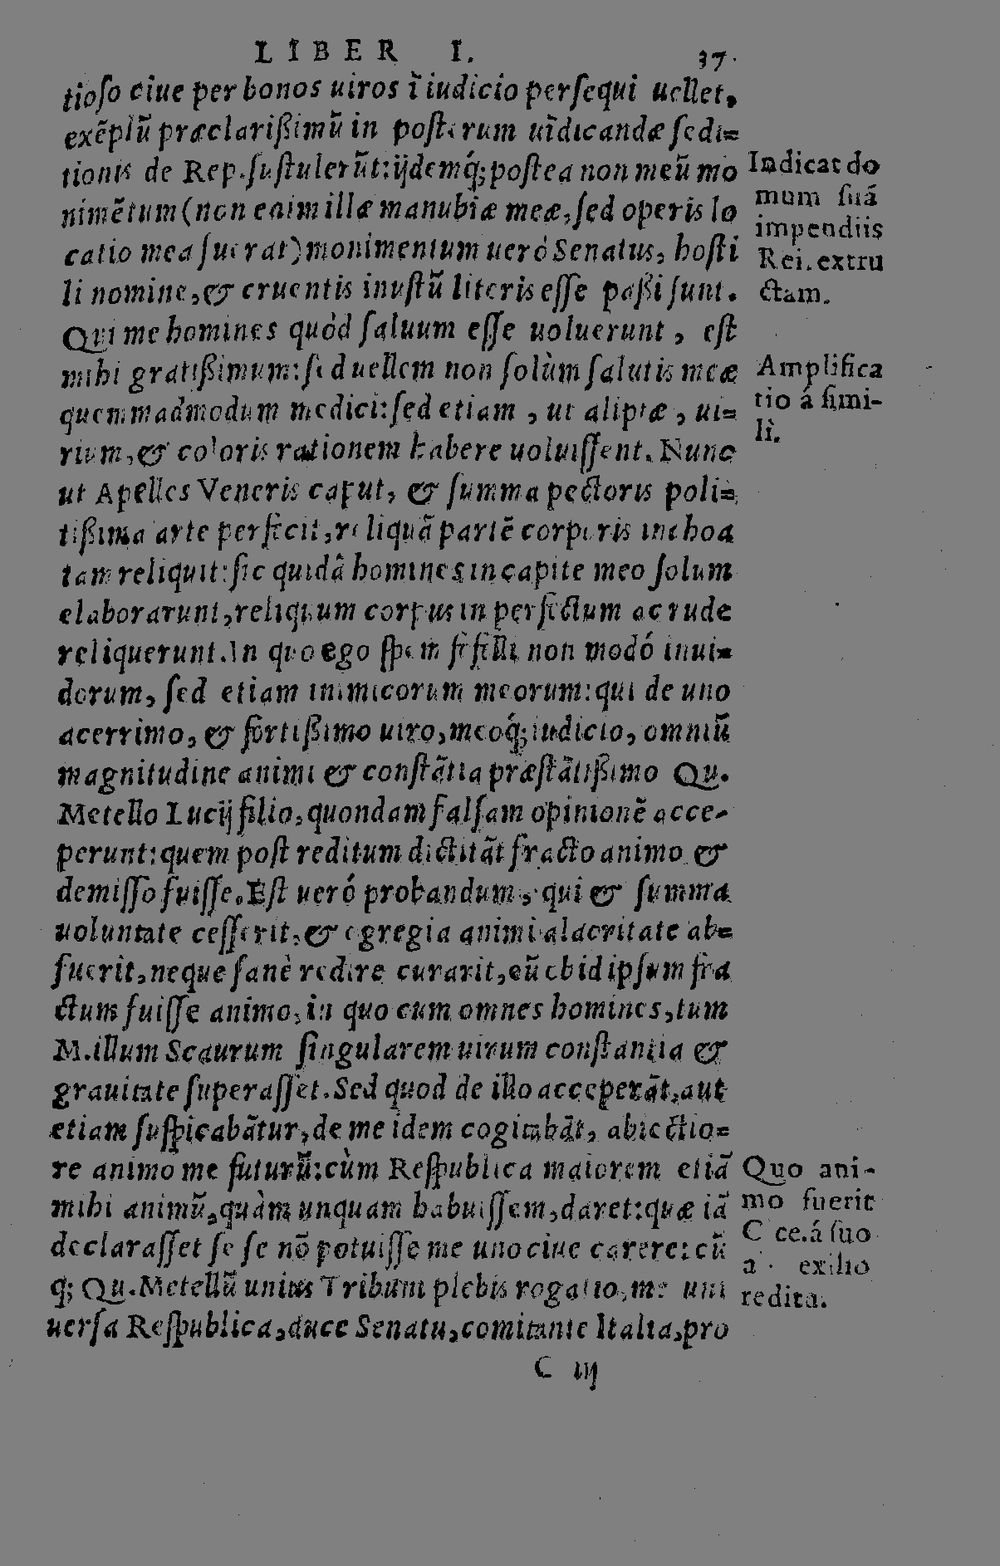 LIBER I. 37.
tioso ciue per bonos uiros ĩ iudicio persequi uellet,
exẽplũ præclarißimũ in posterum uĩdicandæ sedi=
tionis de Rep. sustulerũt: ijdemq́; postea non meũ mo
nimẽtum (non enim illæ manubiæ meæ, sed operis lo
catio mea fuerat) monimentum ueró Senatus, hosti
li nomine, & cruentis inustũ literis esse paßi sunt.
Qui me homines quòd saluum esse uoluerunt, est
mihi gratißimum: sed uellem non solùm salutis meæ
quemmadmodum medici: sed etiam, ut aliptæ, ui=
rium, & coloris rationem habere uoluissent. Nunc
ut Apelles Veneris caput, & summa pectoris poli=
tißima arte perfecit, reliquã partẽ corporis inchoa
tam reliquit: sic quidã homines in capite meo solum
elaborarunt, reliquum corpus imperfectum ac rude
reliquerunt. In quo ego spem fefelli non modó inui=
dorum, sed etiam inimicorum meorum: qui de uno
acerrimo, & fortißimo uiro, meoq́; iudicio, omniũ
magnitudine animi & constãtia præstãtißimo Qu.
Metello Lucij filio, quondam falsam opinionẽ acce-
perunt: quem post reditum dictitãt fracto animo &
demisso fuisse. Est ueró probandum, qui & summa
uoluntate cesserit, & egregia animi alacritate ab=
fuerit, neque sanè redire curarit, eũ ob id ipsum fra
ctum fuisse animo, in quo cum omnes homines, tum
M. illum Scaurum singularem uirum constantia &
grauitate superasset. Sed quod de illo acceperãt, aut
etiam suspicabãtur, de me idem cogitabãt, abiectio=
re animo me futurũ: cùm Respublica maiorem etiã
mihi animũ, quàm unquam habuissem, daret: quæ iã
declarasset se se nõ potuisse me uno ciue carere: cũ
q; Qu. Metellũ unius Tribuni plebis rogatio, me uni
uersa Respublica, duce Senatu, comitante Italia, pro
C iij
Indicat do
mum suã
impendiis
Rei. extru
ctam.
Amplifica
tio á simi-
li.
Quo ani-
mo fuerit
C ce. á suo
exilio
redita.